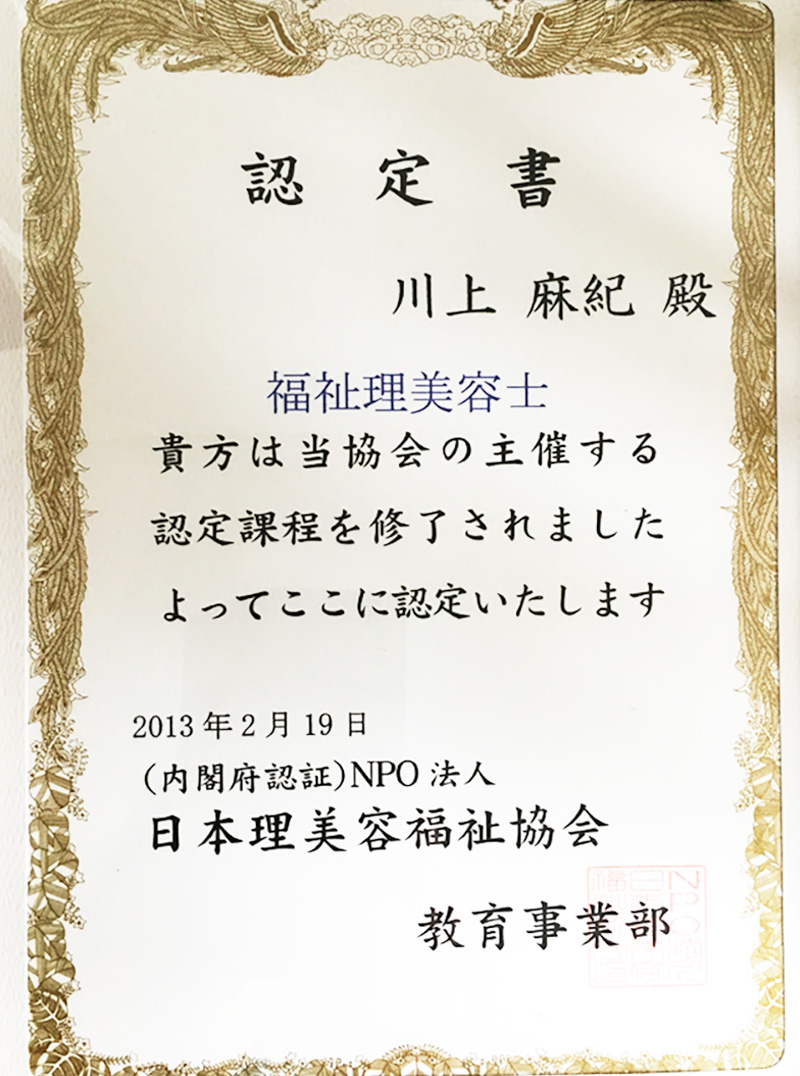 認定書
川上 麻紀 殿
福祉理美容士
貴方は当協会の主催する
認定課程を修了されました
よってここに認定いたします
2013年2月19日
(内閣府認証)NPO法人
日本理美容福祉協会
教育事業部